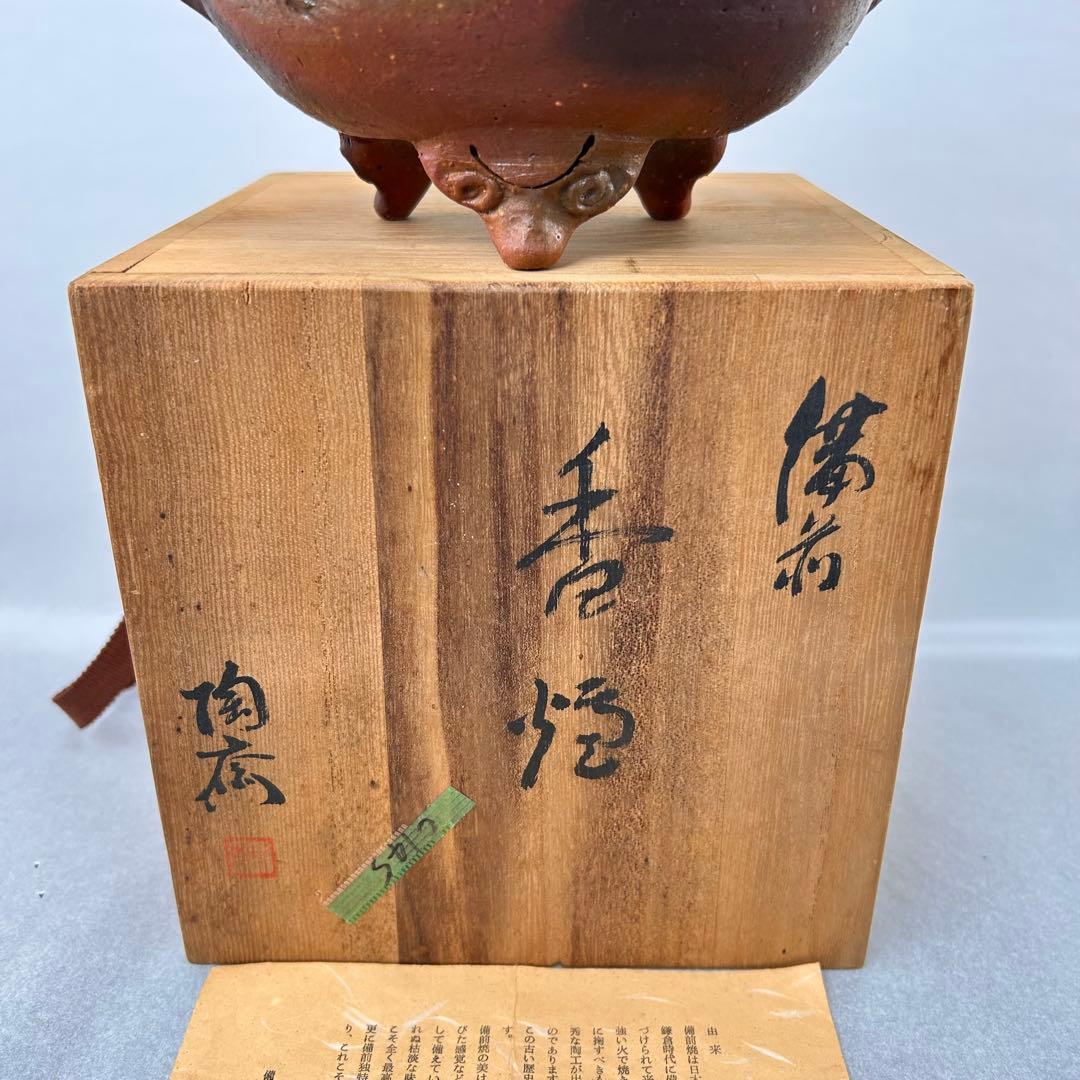 備前
香炉
陶斎
由来
備前焼は日本
鎌倉時代に備
づけられて
強い火で焼き
に掬すべき
秀な陶工が出
のであります
この古い歴史
す。
備前焼の美は
びた感覚など
して備えてい
れぬ枯淡な味
こそ全く最高
更に備前独特
り、これこそ
備